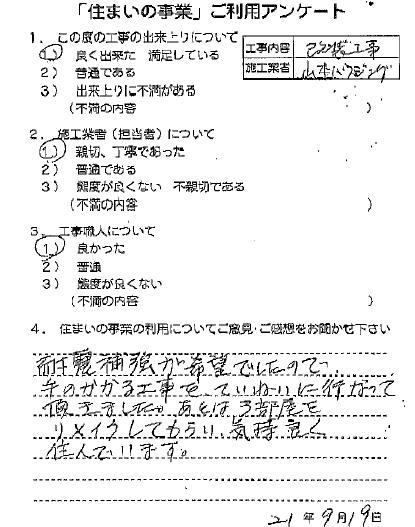 「住まいの事業」ご利用アンケート
1. この度の工事の出来上りについて
工事内容 改築工事
1) 良く出来た 満足している
施工業者 山本ハウジング
2) 普通である
3) 出来上りに不満がある
(不満の内容 )
2. 施工業者(担当者)について
1) 親切、丁寧であった
2) 普通である
3) 態度が良くない 不親切である
(不満の内容 )
3. 工事職人について
1) 良かった
2) 普通
3) 態度が良くない
(不満の内容 )
4. 住まいの事業の利用についてご意見・ご感想をお聞かせ下さい
耐震補強が希望でしたので、
手のかかる工事を、ていねいに行なって
頂きました。あとは3部屋を
リメイクしてもらい、気持良く
住んでいます。
21年9月19日